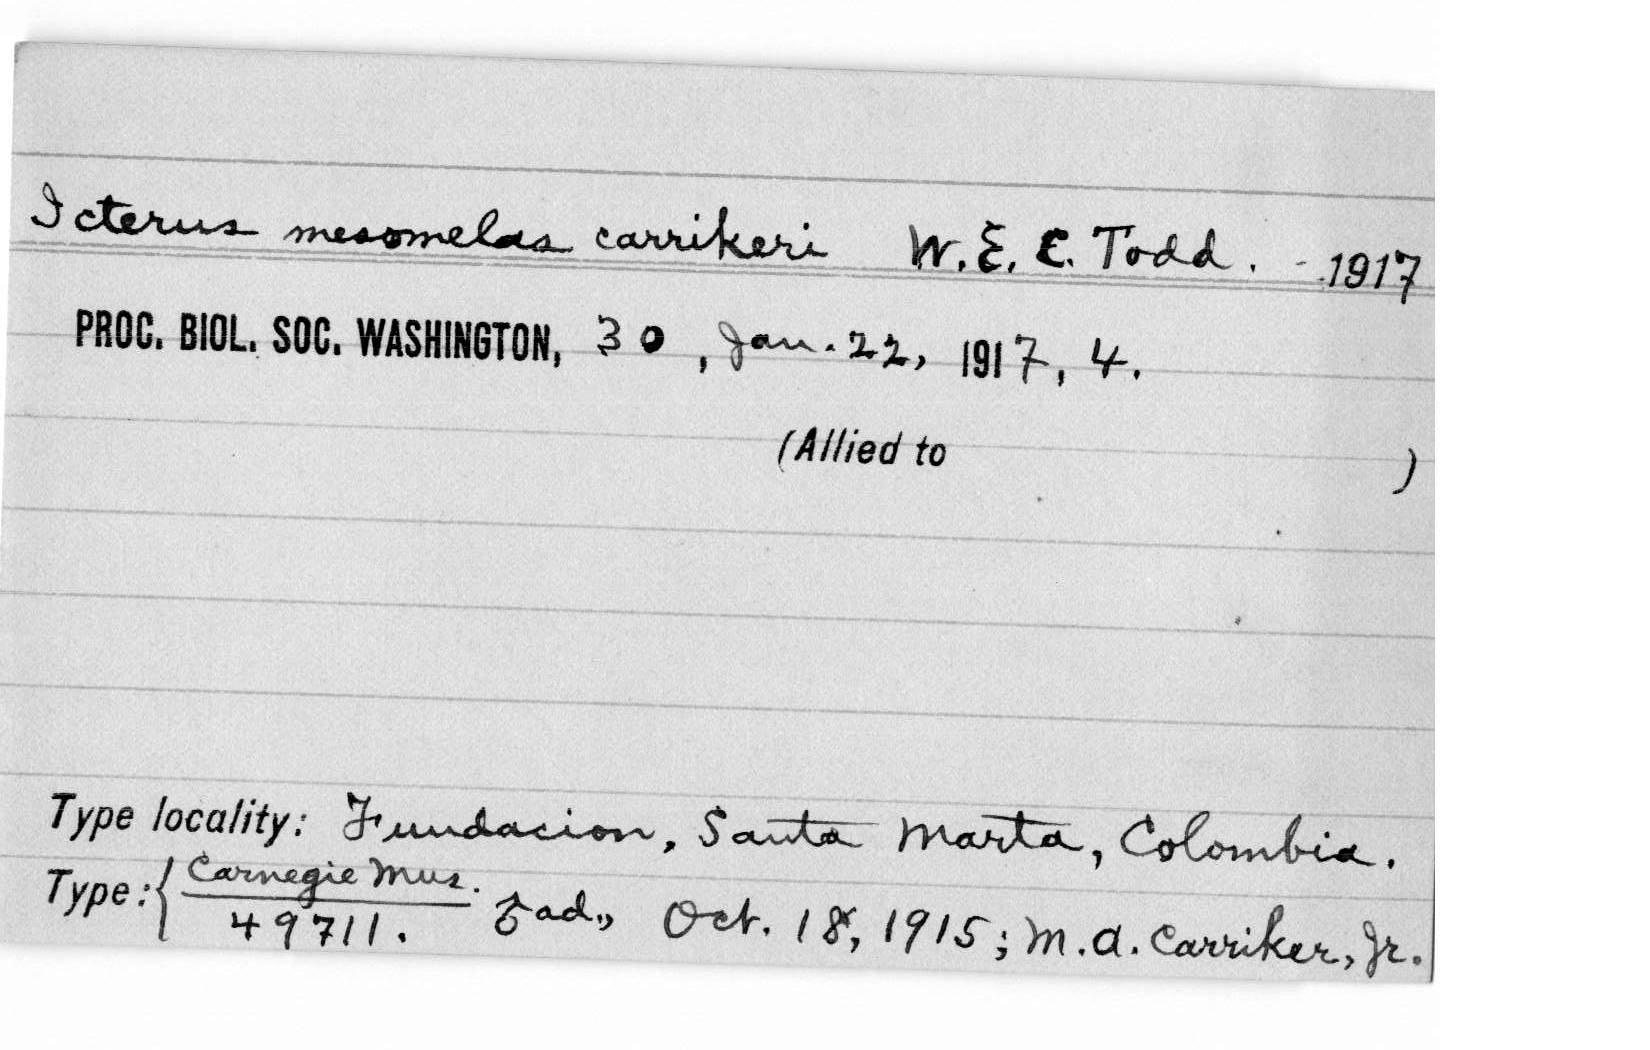 Icterus mesomelas carrikeri W. E. C. Todd. - 1917
PROC. BIOL. SOC. WASHINGTON, 30, Jan. 22, 1917, 4.
(Allied to )
Type locality: Fundacion, Santa Marta, Colombia.
Type:{ Carnegie Mus.
49711. ♂ ad., Oct. 18, 1915; M. A. Carriker, Jr.